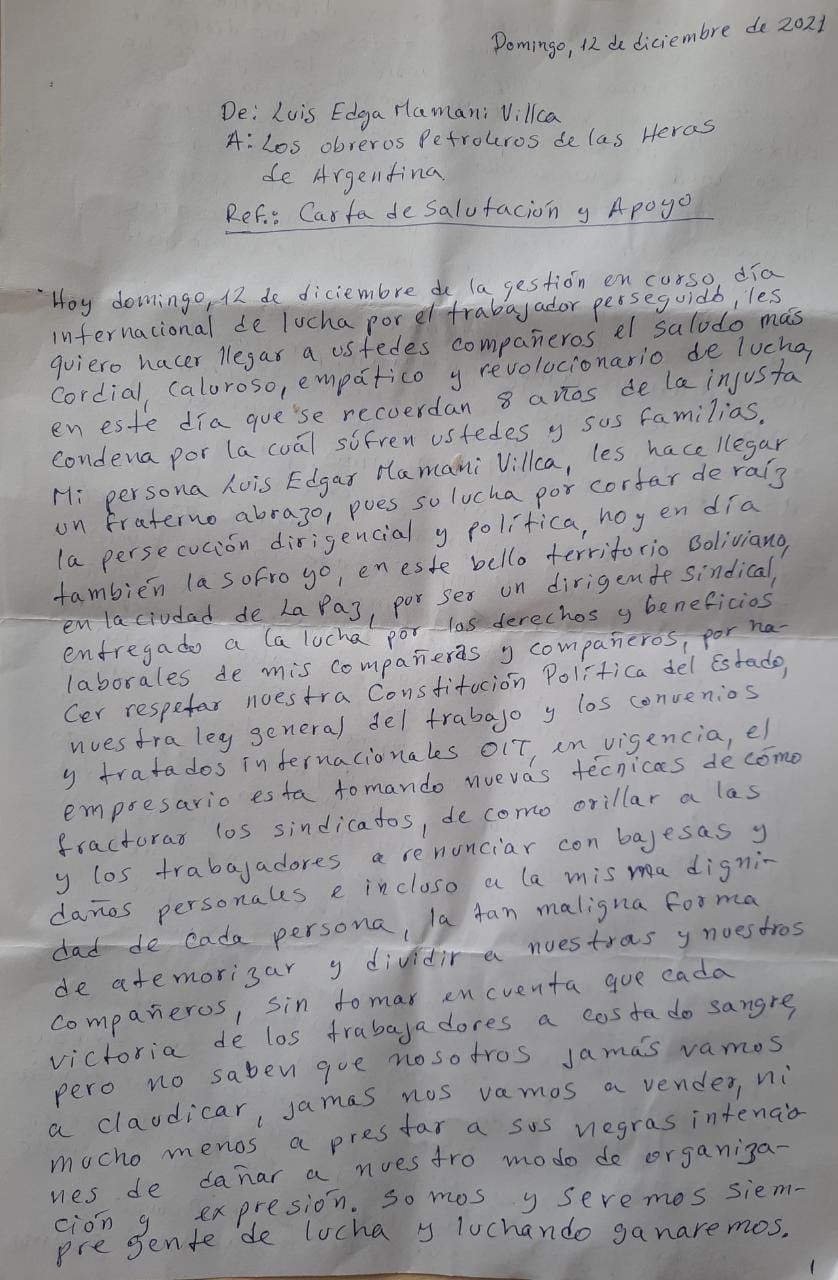 Domingo, 12 de diciembre de 2021
De: Luis Edga Mamani Villca
A: Los obreros Petroleros de las Heras
de Argentina.
Ref.: Carta de Salutación y Apoyo
Hoy domingo, 12 de diciembre de la gestión en curso, día
internacional de lucha por el trabajador perseguido, les
quiero hacer llegar a ustedes compañeros el saludo más
cordial, caluroso, empático y revolucionario de lucha,
en este día que se recuerdan 8 años de la injusta
condena por la cuál súfren ustedes y sus familias.
Mi persona Luis Edgar Mamani Villca, les hace llegar
un fraterno abrazo, pues su lucha por cortar de raíz
la persecución dirigencial y política, hoy en día
también la sofro yo, en este bello territorio Boliviano,
en la ciudad de La Paz, por ser un dirigente sindical,
entregado a la lucha por los derechos y beneficios
laborales de mis compañeras y compañeros, por ha-
cer respetar nuestra Constitución Política del Estado,
nuestra ley general del trabajo y los convenios
y tratados internacionales OIT, en vigencia, el
empresario esta tomando nuevas técnicas de cómo
fracturar los sindicatos, de como orillar a las
y los trabajadores a renunciar con bajesas y
daños personales e incluso a la misma digni-
dad de cada persona, la tan maligna forma
de atemorizar y dividir a nuestras y nuestros
compañeros, sin tomar en cuenta que cada
victoria de los trabajadores a costado sangre,
pero no saben que nosotros jamás vamos
a claudicar, jamas nos vamos a vender, ni
mucho menos a prestar a sus negras intencio
nes de dañar a nuestro modo de organiza-
ción y expresión. Somos y seremos siem-
pre gente de lucha y luchando ganaremos.
1